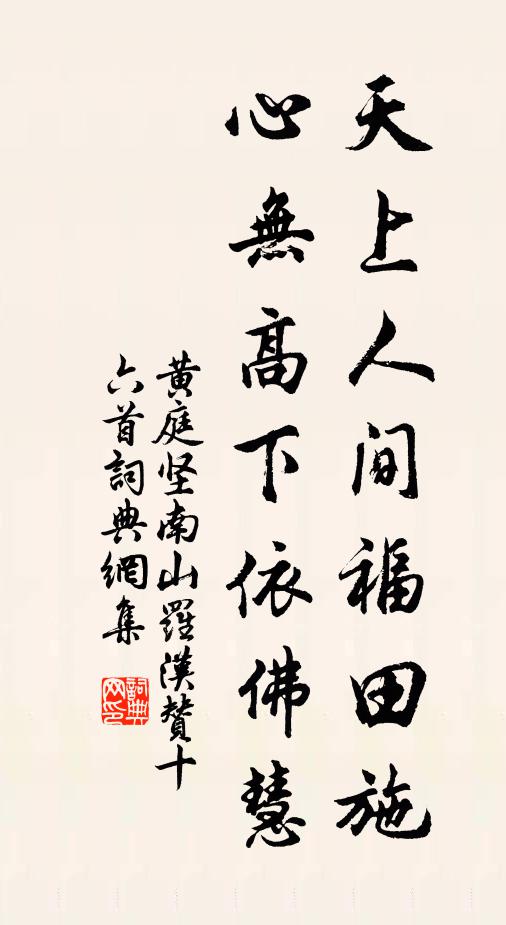 天上人间福田施
心無高下依佛慧
黄庭坚南山羅漢贊十
六首詞典網集
詞典
网印